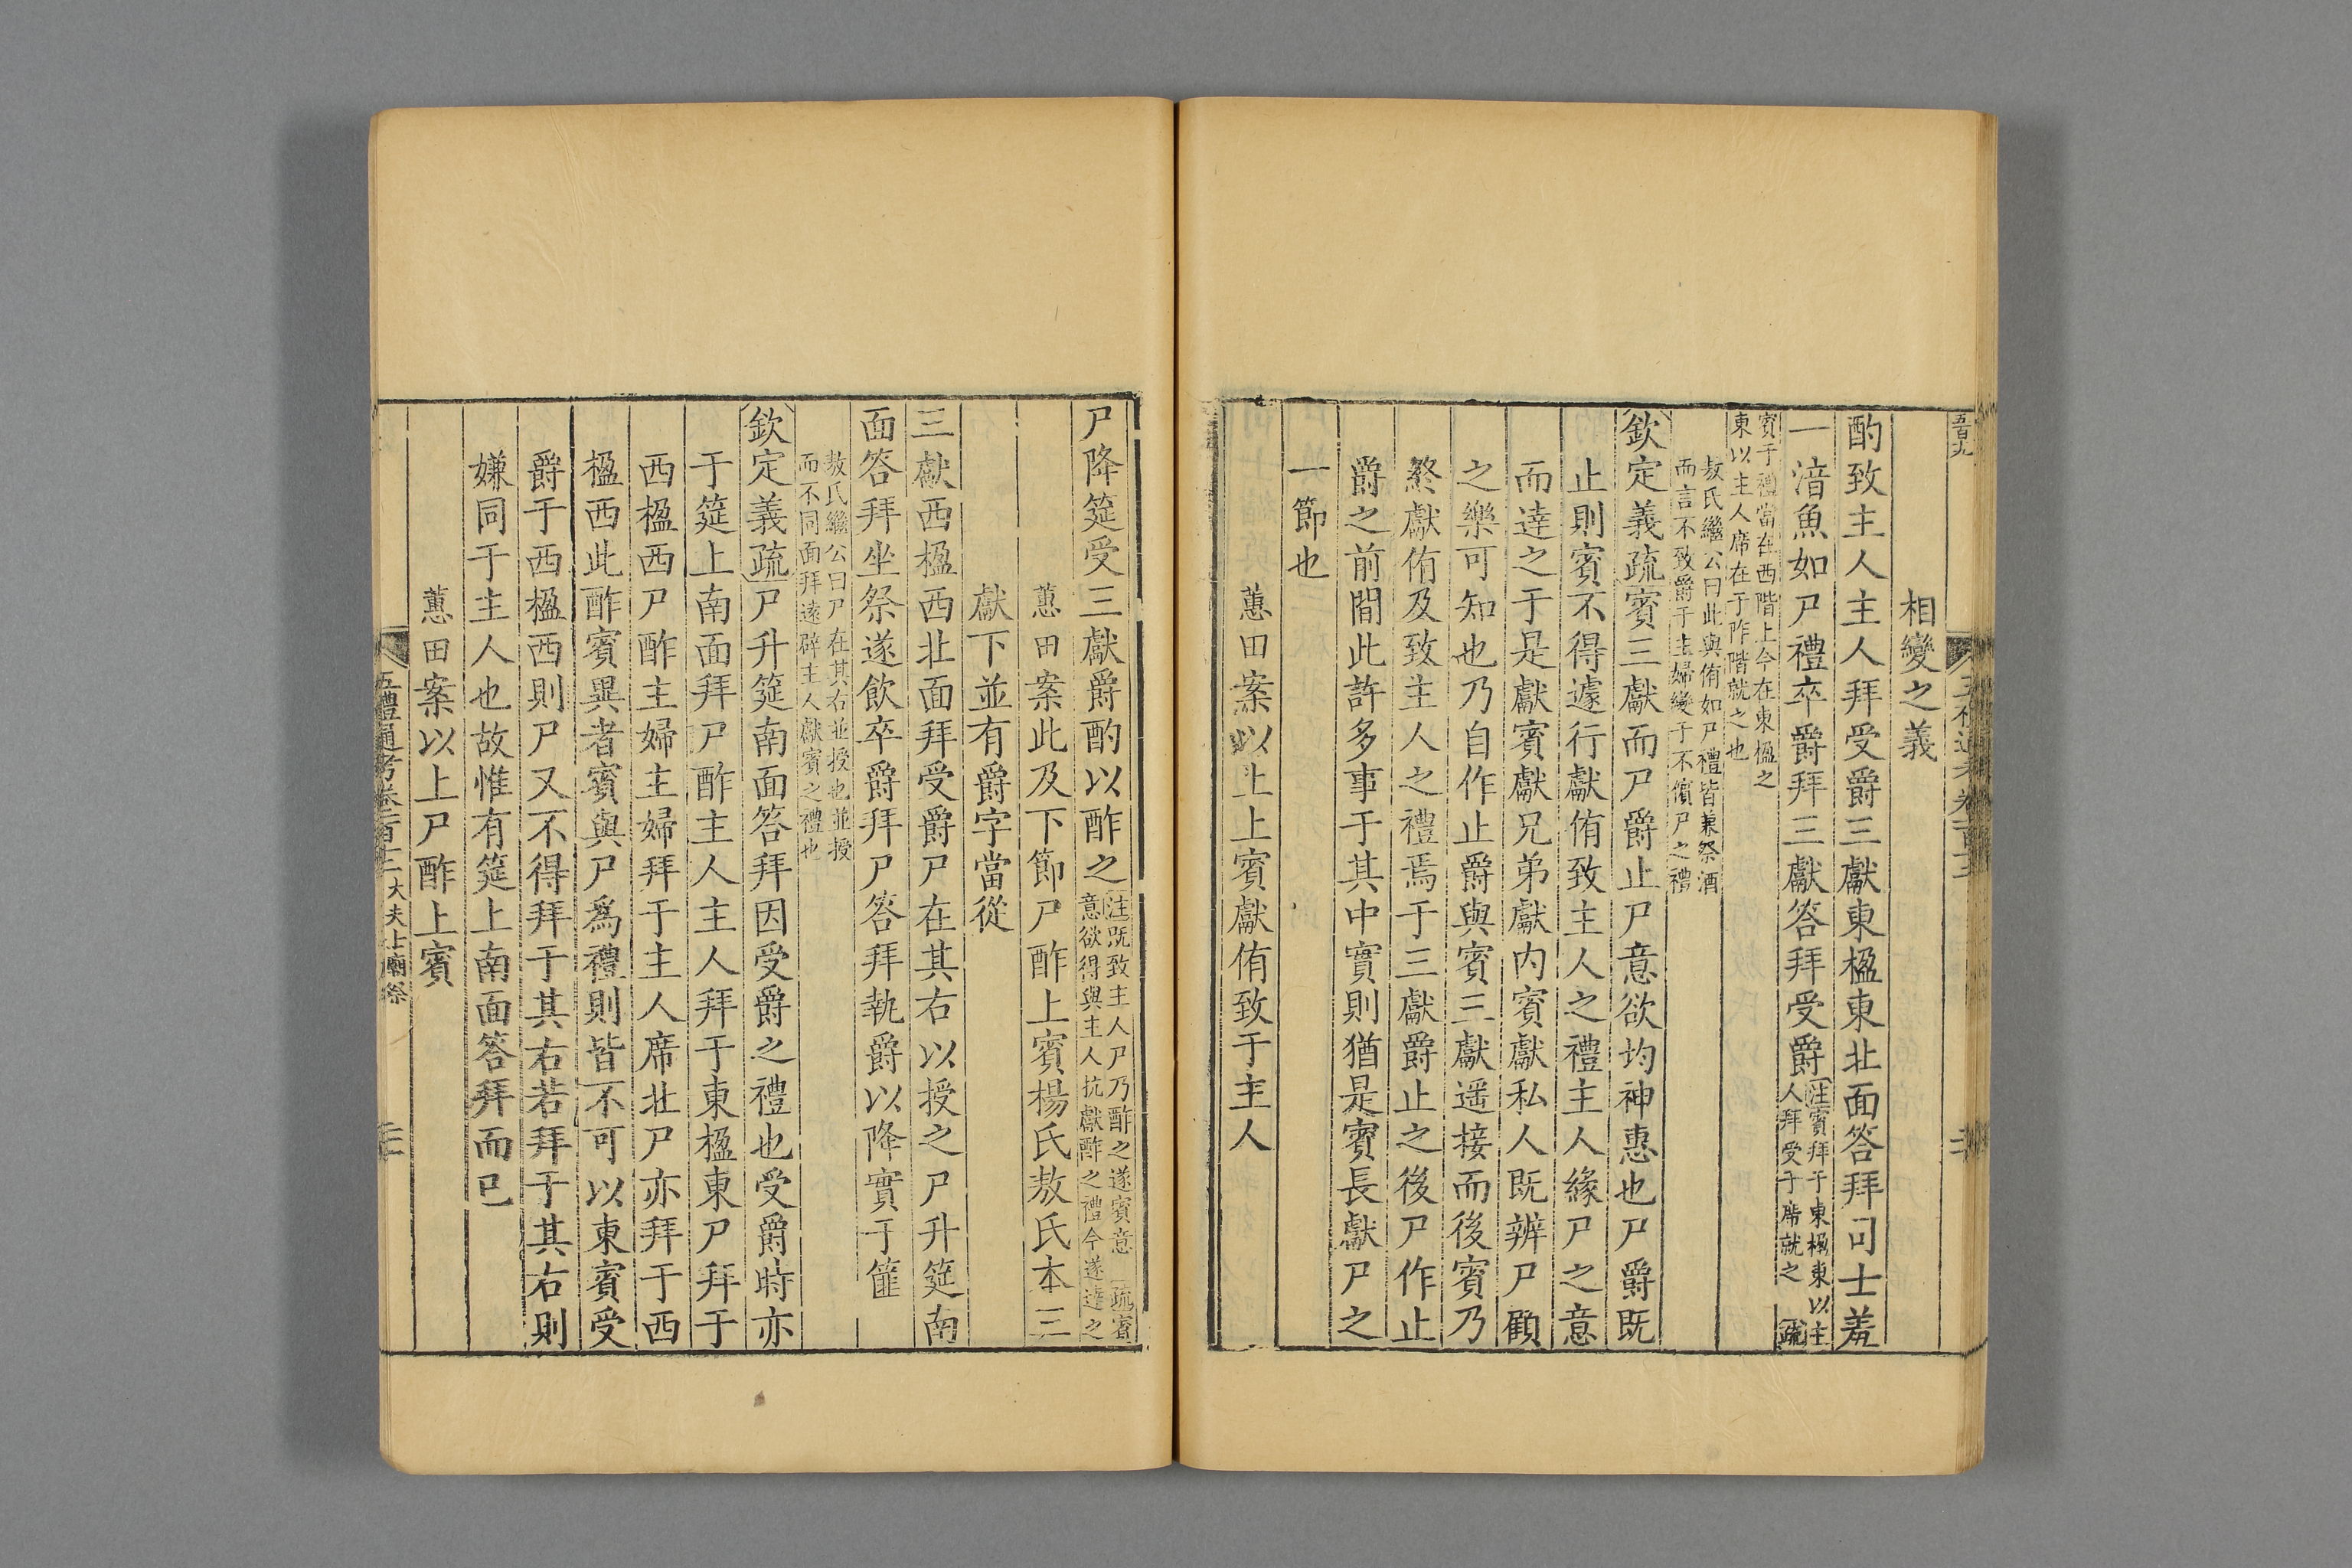 五百九
相變之義
酌致主人主人拜受爵三獻東楹東北面答拜司士羞
一湆魚如尸禮卒爵拜三獻答拜受爵注賓拜于東楹東以主
人拜受于席就之 疏
賓于禮當在西階上今在東楹之
東以主人席在于阼階就之也
敖氏繼公曰此與侑如尸禮皆兼祭酒
而言不致爵于主婦變于不儐尸之禮
欽定義疏賓三獻而尸爵止尸意欲均神惠也尸爵既
止則賓不得遽行獻侑致主人之禮主人緣尸之意
而達之于是獻賓獻兄弟獻内賓獻私人既辨尸顧
之樂可知也乃自作止爵與賓三獻遥接而後賓乃
終獻侑及致主人之禮焉于三獻爵止之後尸作止
爵之前間此許多事于其中實則猶是賓長獻尸之
一節也
蕙田案以上上賓獻侑致于主人
尸降筵受三獻爵酌以酢之注既致主人尸乃酢之遂賓意 疏賓
意欲得與主人抗獻酢之禮今遂達之
蕙田案此及下節尸酢上賓楊氏敖氏本三
獻下並有爵字當從
三獻西楹西北面拜受爵尸在其右以授之尸升筵南
面答拜坐祭遂飲卒爵拜尸答拜執爵以降實于篚
敖氏繼公曰尸在其右並授也並授
而不同面拜逺辟主人獻賓之禮也
欽定義疏尸升筵南面答拜因受爵之禮也受爵時亦
于筵上南面拜尸酢主人主人拜于東楹東尸拜于
西楹西尸酢主婦主婦拜于主人席北尸亦拜于西
楹西此酢賓異者賓與尸爲禮則皆不可以東賓受
爵于西楹西則尸又不得拜于其右若拜于其右則
嫌同于主人也故惟有筵上南面答拜而已
蕙田案以上尸酢上賓
五禮通考卷一百十二 大夫士廟祭